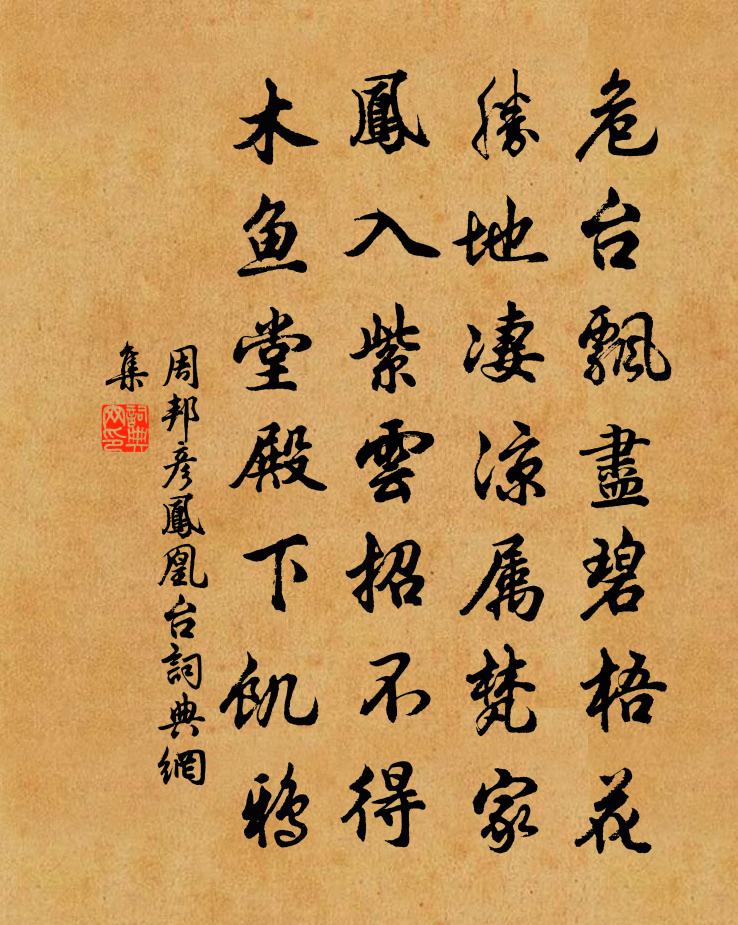 危台飄盡碧梧花
勝地凄涼属梵家
鳳入紫雲招不得
木鱼堂殿下飢鴉
周邦彦鳳凰台詞典網
集
詞典
网印